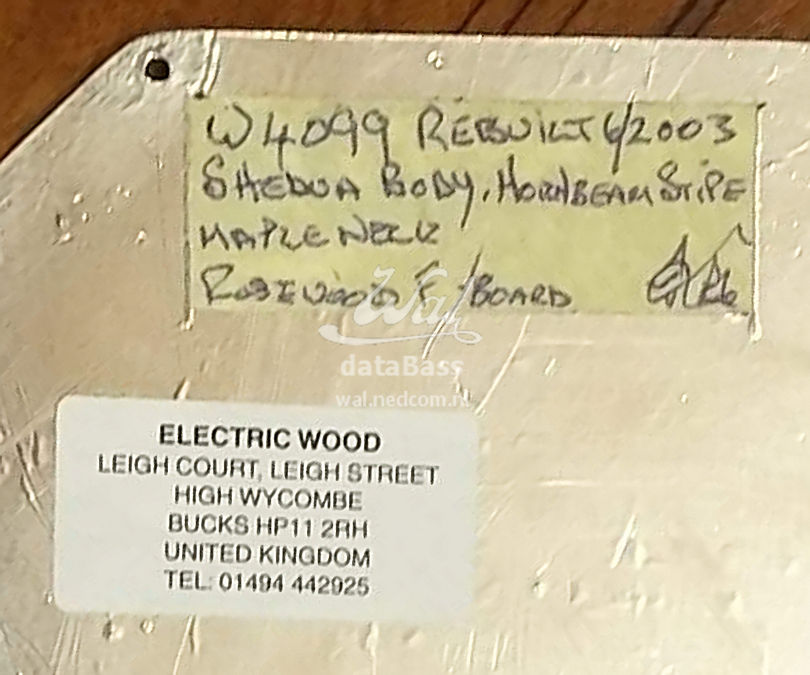 W4099 REBUILT 6/2003
SHEDUA BODY, HORNBEAM STIPE
MAPLE NECK
ROSEWOOD F/BOARD
Wal
dataBass
wal.nedcom.n
ELECTRIC WOOD
LEIGH COURT, LEIGH STREET
HIGH WYCOMBE
BUCKS HP11 2RH
UNITED KINGDOM
TEL: 01494 442925